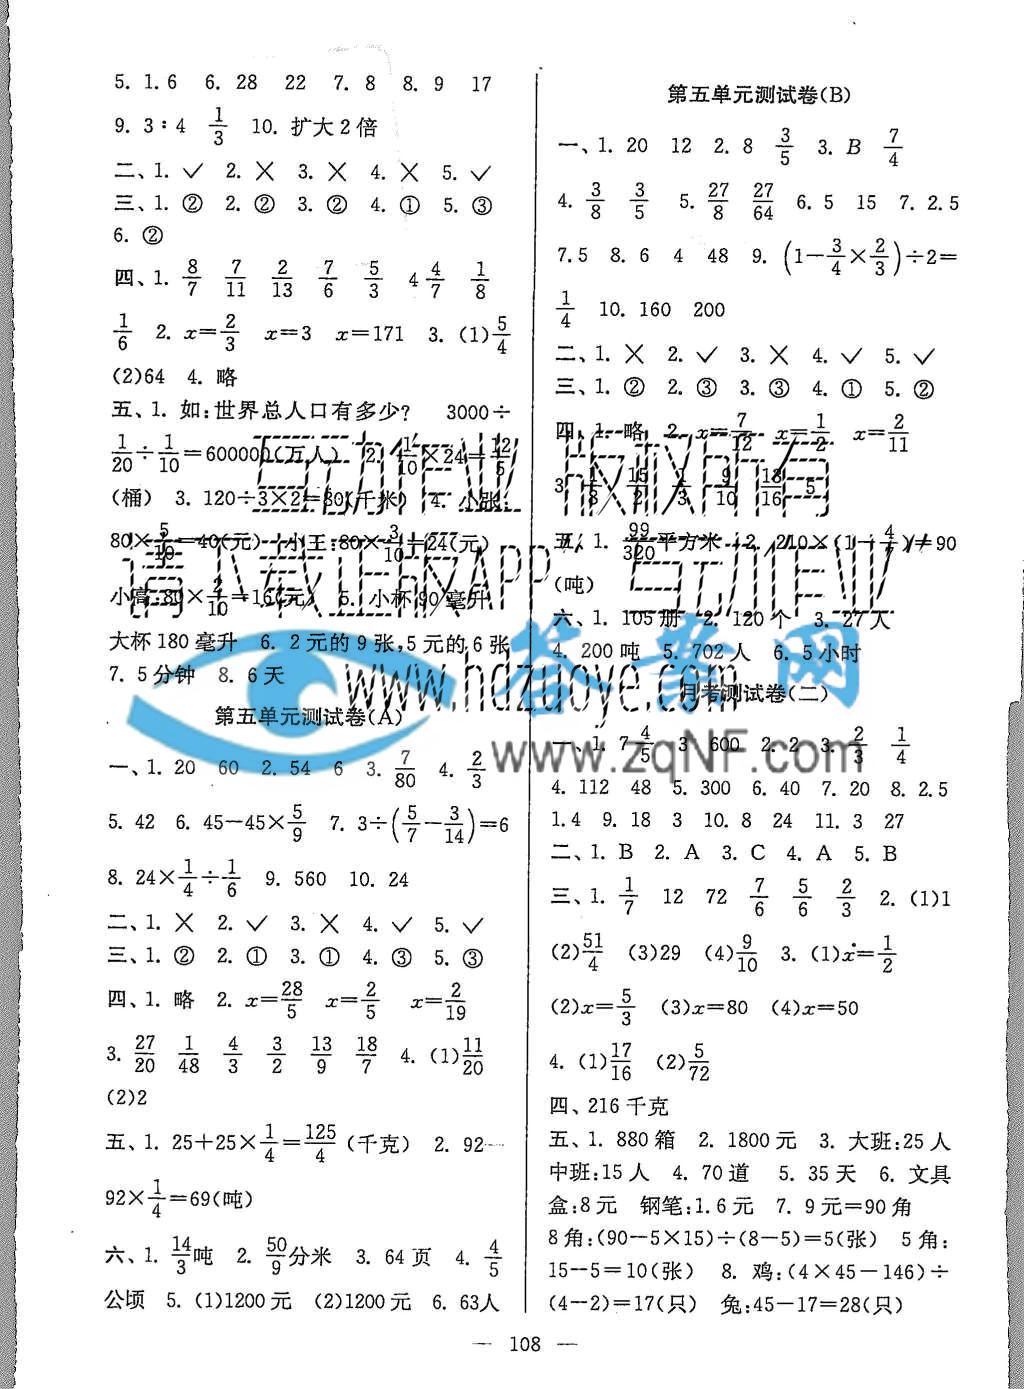 5. 1.6 6. 28 22 7. 8 8. 9 17
9. 3∶4 1/3 10. 扩大2倍
二、1. ✓ 2. ✕ 3. ✕ 4. ✕ 5. ✓
三、1. ② 2. ② 3. ② 4. ① 5. ③
6. ②
四、1. 8/7 7/11 2/13 7/6 5/3 4 4/7 1/8
1/6 2. x=2/3 x=3 x=171 3. (1)5/4
(2)64 4. 略
五、1. 如:世界总人口有多少? 3000÷
1/20÷1/10=600000(万人) 2. 1/10×24=12/5
(桶) 3. 120÷3×2=80(千米) 4. 小张:
80×5/10=40(元) 小王:80×3/10=24(元)
小高:80×2/10=16(元) 5. 小杯90毫升
大杯180毫升 6. 2元的9张,5元的6张
7. 5分钟 8. 6天
第五单元测试卷(A)
一、1. 20 60 2. 54 6 3. 7/80 4. 2/3
5. 42 6. 45－45×5/9 7. 3÷(5/7－3/14)=6
8. 24×1/4÷1/6 9. 560 10. 24
二、1. ✕ 2. ✓ 3. ✕ 4. ✓ 5. ✓
三、1. ② 2. ① 3. ① 4. ③ 5. ③
四、1. 略 2. x=28/5 x=2/5 x=2/19
3. 27/20 1/48 4/3 3/2 13/9 18/7 4. (1)11/20
(2)2
五、1. 25+25×1/4=125/4(千克) 2. 92－
92×1/4=69(吨)
六、1. 14/3吨 2. 50/9分米 3. 64页 4. 4/5
公顷 5. (1)1200元 (2)1200元 6. 63人
第五单元测试卷(B)
一、1. 20 12 2. 8 3/5 3. B 7/4
4. 3/8 3/5 5. 27/8 27/64 6. 5 15 7. 2.5
7.5 8. 6 4 48 9. (1－3/4×2/3)÷2=
1/4 10. 160 200
二、1. ✕ 2. ✓ 3. ✕ 4. ✓ 5. ✓
三、1. ② 2. ③ 3. ③ 4. ① 5. ②
四、1. 略 2. x=7/12 x=1/2 x=2/11
3. 1/8 15/2 1/3 9/10 13/16 5
五、1. 99/320平方米 2. 210×(1－4/7)=90
(吨)
六、1. 105册 2. 120个 3. 27人
4. 200吨 5. 702人 6. 5小时
月考测试卷(二)
一、1. 7 4/5 3 600 2. 2 3. 2/3 1/4
4. 112 48 5. 300 6. 40 7. 20 8. 2.5
1.4 9. 18 3 10. 8 24 11. 3 27
二、1. B 2. A 3. C 4. A 5. B
三、1. 1/7 12 72 7/6 5/6 2/3 2. (1)1
(2)51/4 (3)29 (4)9/10 3. (1)x=1/2
(2)x=5/3 (3)x=80 (4)x=50
4. (1)17/16 (2)5/72
四、216千克
五、1. 880箱 2. 1800元 3. 大班:25人
中班:15人 4. 70道 5. 35天 6. 文具
盒:8元 钢笔:1.6元 7. 9元=90角
8角:(90－5×15)÷(8－5)=5(张) 5角:
15－5=10(张) 8. 鸡:(4×45－146)÷
(4－2)=17(只) 兔:45－17=28(只)
— 108 —
互动作业 版权所有
请下载正版APP"互动作业"
www.hdzuoye.com
答案网
www.zqNF.com